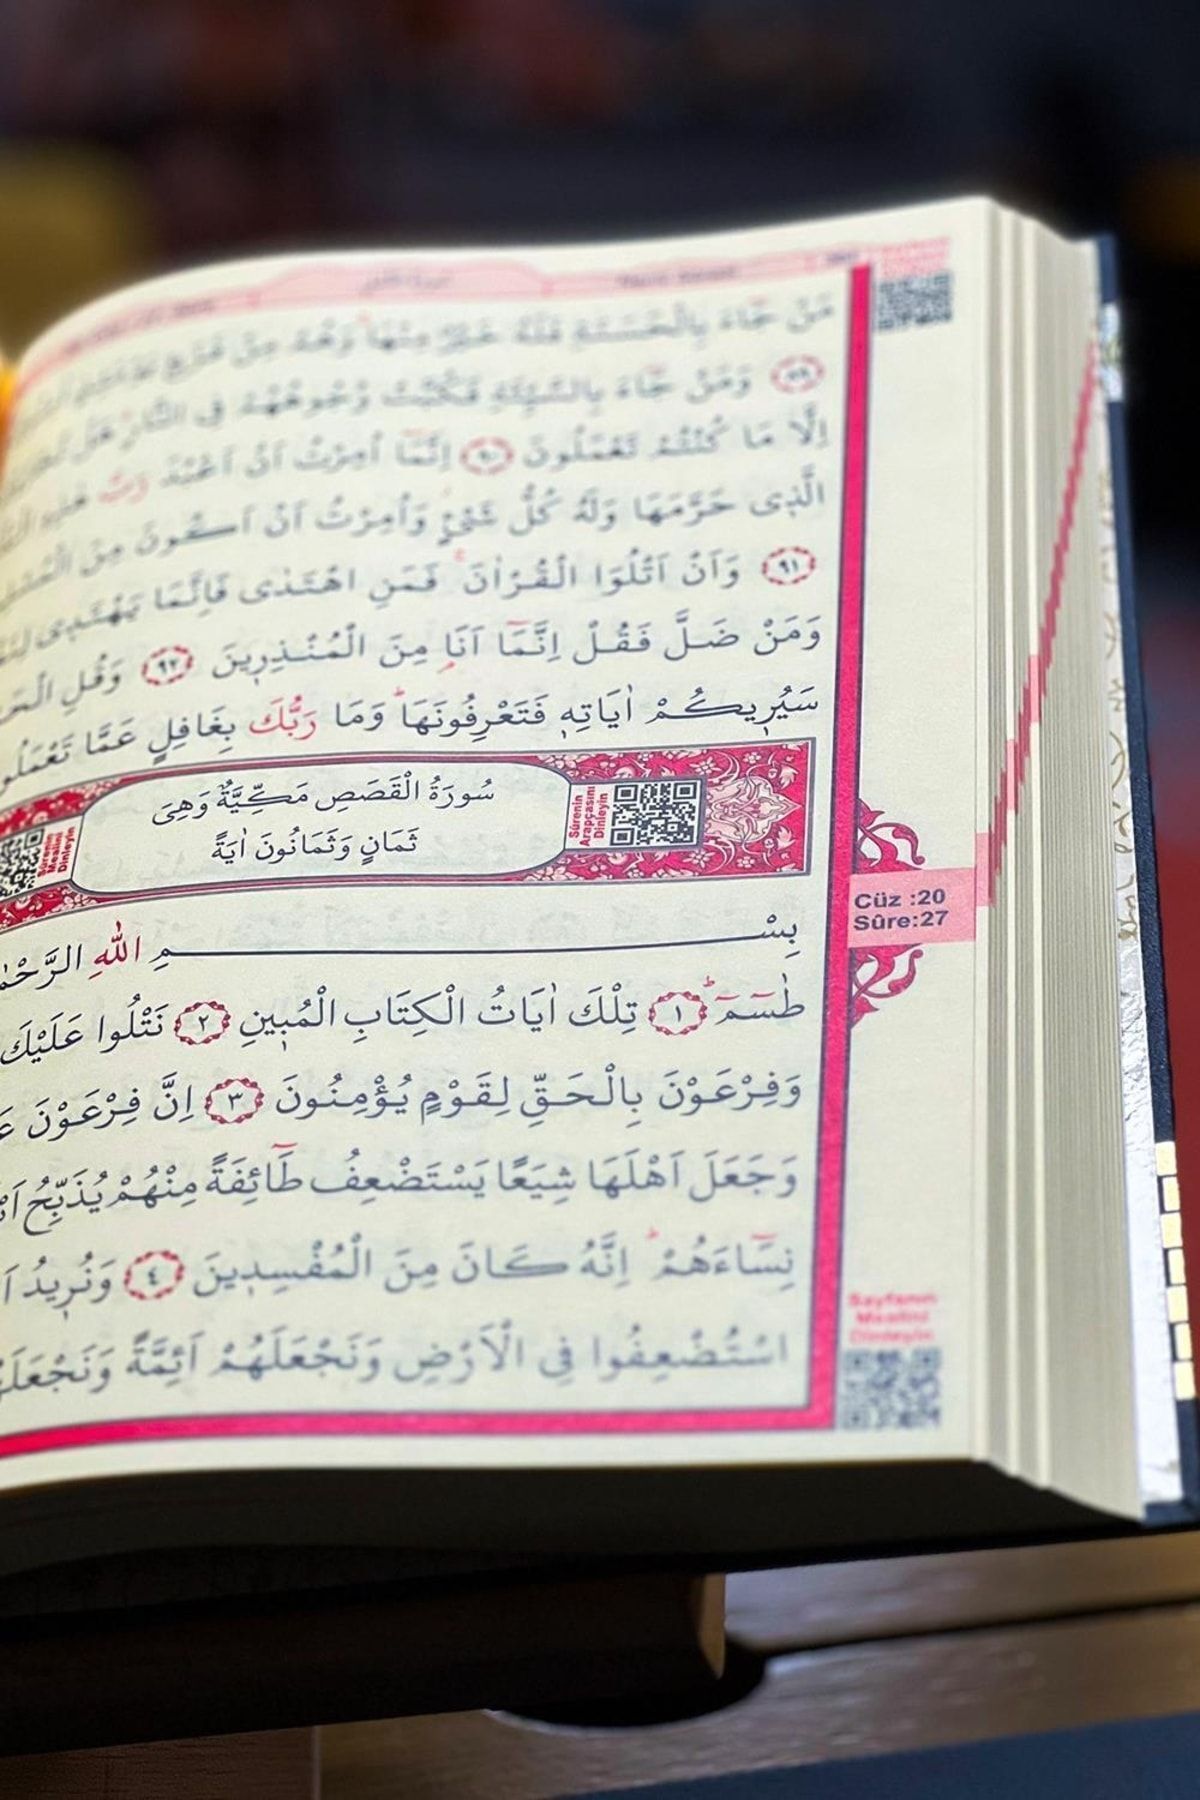 مَنْ جَٓاءَ بِالْحَسَنَةِ فَلَهُ خَيْرٌ مِنْهَا وَهُمْ مِنْ فَزَعٍ
﴿٨٩﴾ وَمَنْ جَٓاءَ بِالسَّيِّئَةِ فَكُبَّتْ وُجُوهُهُمْ فِي النَّارِ هَلْ
اِلَّا مَا كُنْتُمْ تَعْمَلُونَ ﴿٩٠﴾ اِنَّمَٓا اُمِرْتُ اَنْ اَعْبُدَ رَبَّ هٰذِهِ
الَّذ۪ي حَرَّمَهَا وَلَهُ كُلُّ شَيْءٍ وَاُمِرْتُ اَنْ اَكُونَ مِنَ
﴿٩١﴾ وَاَنْ اَتْلُوَا الْقُرْاٰنَ فَمَنِ اهْتَدٰى فَاِنَّمَا يَهْتَد۪ي
وَمَنْ ضَلَّ فَقُلْ اِنَّمَٓا اَنَا۬ مِنَ الْمُنْذِر۪ينَ ﴿٩٢﴾ وَقُلِ
سَيُر۪يكُمْ اٰيَاتِه۪ فَتَعْرِفُونَهَا وَمَا رَبُّكَ بِغَافِلٍ عَمَّا
سُورَةُ الْقَصَصِ مَكِّيَّةٌ وَهِيَ
ثَمَانٍ وَثَمَانُونَ اٰيَةً
Sûrenin
Arapçasını
Dinleyin
Sûrenin
Mealini
Dinleyin
Cüz :20
Sûre:27
بِسْمِ اللّٰهِ
طٰسٓمٓ ﴿١﴾ تِلْكَ اٰيَاتُ الْكِتَابِ الْمُب۪ينِ ﴿٢﴾ نَتْلُوا عَلَيْكَ
وَفِرْعَوْنَ بِالْحَقِّ لِقَوْمٍ يُؤْمِنُونَ ﴿٣﴾ اِنَّ فِرْعَوْنَ
وَجَعَلَ اَهْلَهَا شِيَعًا يَسْتَضْعِفُ طَٓائِفَةً مِنْهُمْ يُذَبِّحُ
نِسَٓاءَهُمْ اِنَّهُ كَانَ مِنَ الْمُفْسِد۪ينَ ﴿٤﴾ وَنُر۪يدُ
اسْتُضْعِفُوا فِي الْاَرْضِ وَنَجْعَلَهُمْ اَئِمَّةً
Sayfanın
Mealini
Dinleyin